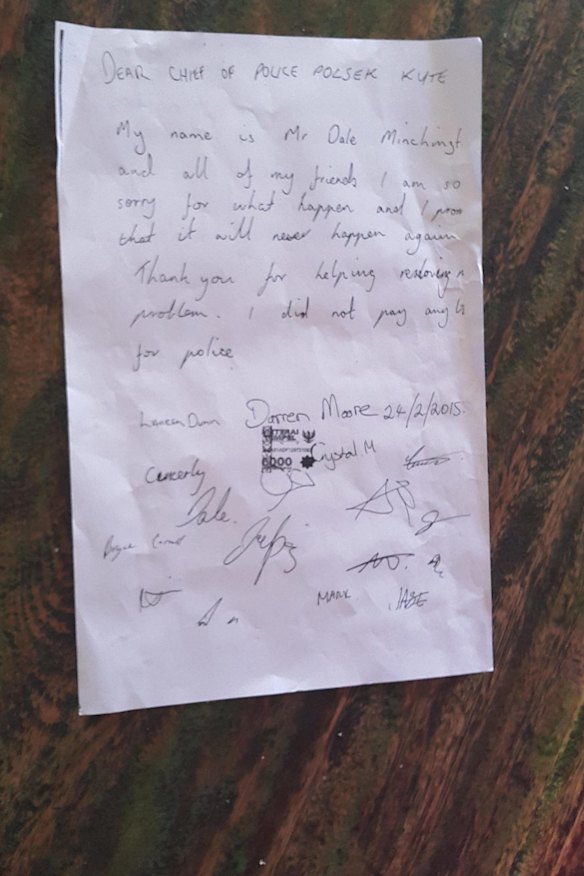 DEAR CHIEF OF POLICE POLSEK KUTE
My name is Mr Dale Minchingt
and all of my friends I am so
sorry for what happen and I prom
that it will never happen again
Thank you for helping resolving m
problem. I did not pay any
for police
Darren Moore 24/2/2015.
Crystal M
6000
Cincerly
Dale.
MARK JASE